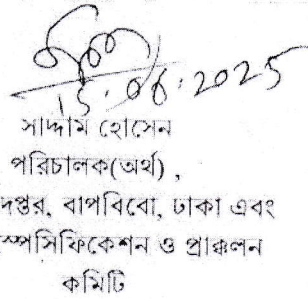 15.06.2025
সাদ্দাম হোসেন
পরিচালক(অর্থ) ,
দপ্তর, বাপবিবো, ঢাকা এবং
স্পেসিফিকেশন ও প্রাক্কলন
কমিটি